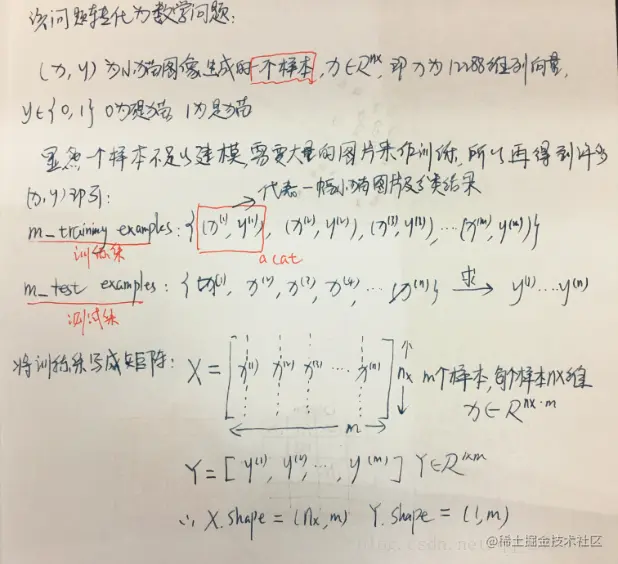 该问题转化为数学问题:
(x, y) 为小猫图像生成的一个样本, x∈R^nx, 即x为12288维列向量,
y∈{0, 1} 0为非猫 1为是猫
显然一个样本不足以建模,需要大量的图片来作训练,所以再得到许多
(x, y)即可:
代表一幅小猫图片及分类结果
m_training examples: {(x^(1), y^(1)), (x^(2), y^(2)), (x^(3), y^(3)), ...(x^(m), y^(m))}
训练集
a cat
m_test examples: {x^(1), x^(2), x^(3), x^(4), ... x^(n)} 求→ y^(1)...y^(n)
测试集
将训练集写成矩阵: X = [x^(1) x^(2) x^(3) ... x^(m)] nx m个样本,每个样本nx维
x∈R^nx·m
m
Y = [y^(1), y^(2), ..., y^(m)] Y∈R^1×m
∴ X.shape = (nx, m) Y.shape = (1, m)
@稀土掘金技术社区